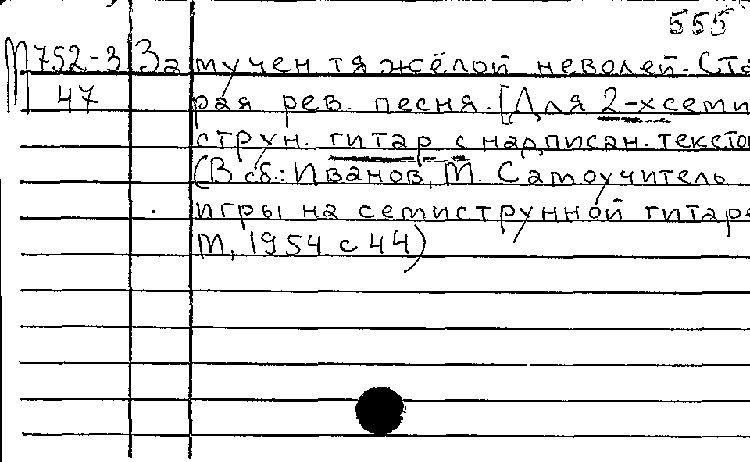 555
М752-3 Замучен тяжёлой неволей. Ста
47 рая рев. песня. [Для 2-х семи
струн. гитар с надписан. тексто
(В сб.: Иванов, М. Самоучитель
игры на семиструнной гитаре
М, 1954 с 44)